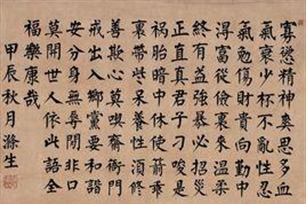 寡慾精神爽思多血
氣衰少杯不亂性忍
氣免傷財貴向勤中
淂富從儉裏來溫柔
終有益強暴必招災
正直真君子刁唆是
禍胎暗中休使箭乖
裏帶些呆養性須修
善欺心莫喫齋衙門
戒出入鄉黨要和諧
安分身無辱閒非口
莫開世人依此語全
福樂康哉
甲辰秋月滌生